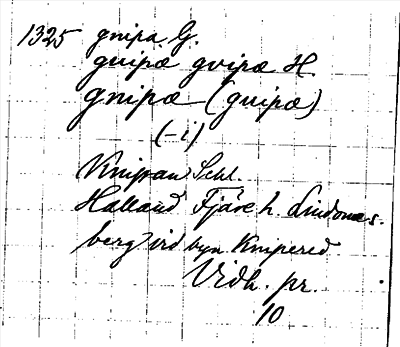 1325 gnipa G.
gnipæ gvipæ H.
gnipæ (guipæ)
(-i)
Knipan Schl.
Halland Fjäre h. Lindome s.
berg vid byn Knipered
Vidh. pr.
10